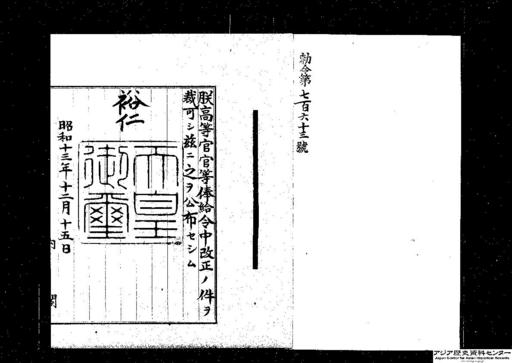 勅令第七百六十三號
朕高等官官等俸給令中改正ノ件ヲ
裁可シ茲ニ之ヲ公布セシム
裕仁
天皇
御璽
昭和十三年十二月十五日
内閣
アジア歴史資料センター
Japan Center for Asian Historical Records